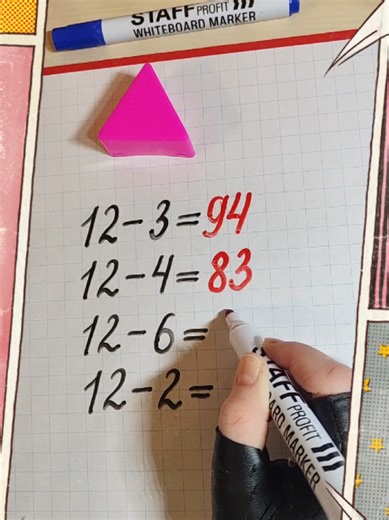 STAFF PROFIT
WHITEBOARD MARKER
12-3=94
12-4=83
12-6=
12-2=
STAFF PROFIT
BOARD MARKER